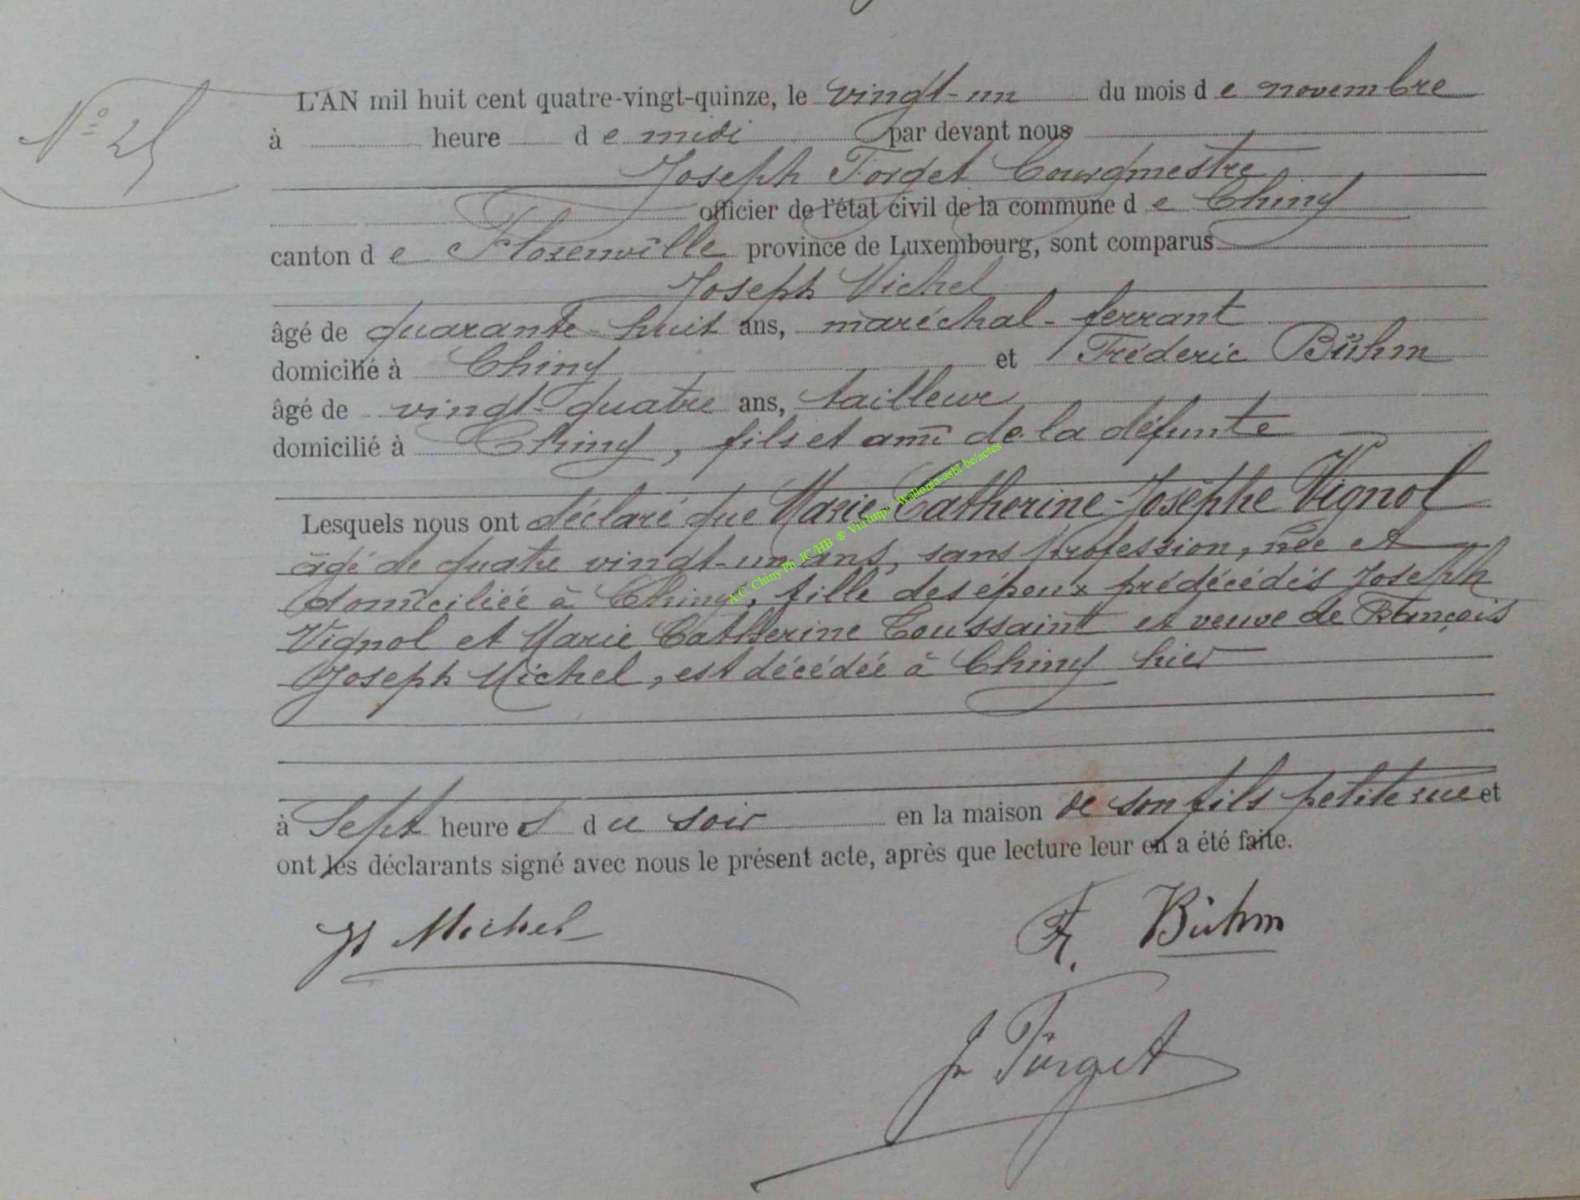 N° 25
L'AN mil huit cent quatre-vingt-quinze, le vingt-un du mois de novembre
à heure de midi par devant nous
Joseph Forget bourgmestre
officier de l'état civil de la commune de Chiny
canton de Florenville province de Luxembourg, sont comparus
Joseph Michel
âgé de quarante huit ans, maréchal-ferrant
domicilié à Chiny et Fréderic Bühm
âgé de vingt-quatre ans, tailleur
domicilié à Chiny, fils et ami de la défunte
Lesquels nous ont déclaré que Marie Catherine-Josephe Vignol
âgé de quatre vingt-un ans, sans profession, née et
domiciliée à Chiny, fille des époux prédécédés Joseph
Vignol et Marie Catherine Toussaint et veuve de François
Joseph Michel, est décédée à Chiny hier
à Sept heures du soir en la maison de son fils petite rue et
ont les déclarants signé avec nous le présent acte, après que lecture leur en a été faite.
Js Michel
Fr. Bühm
Jh Forget
A.C. Chiny Ph JC/HB ©